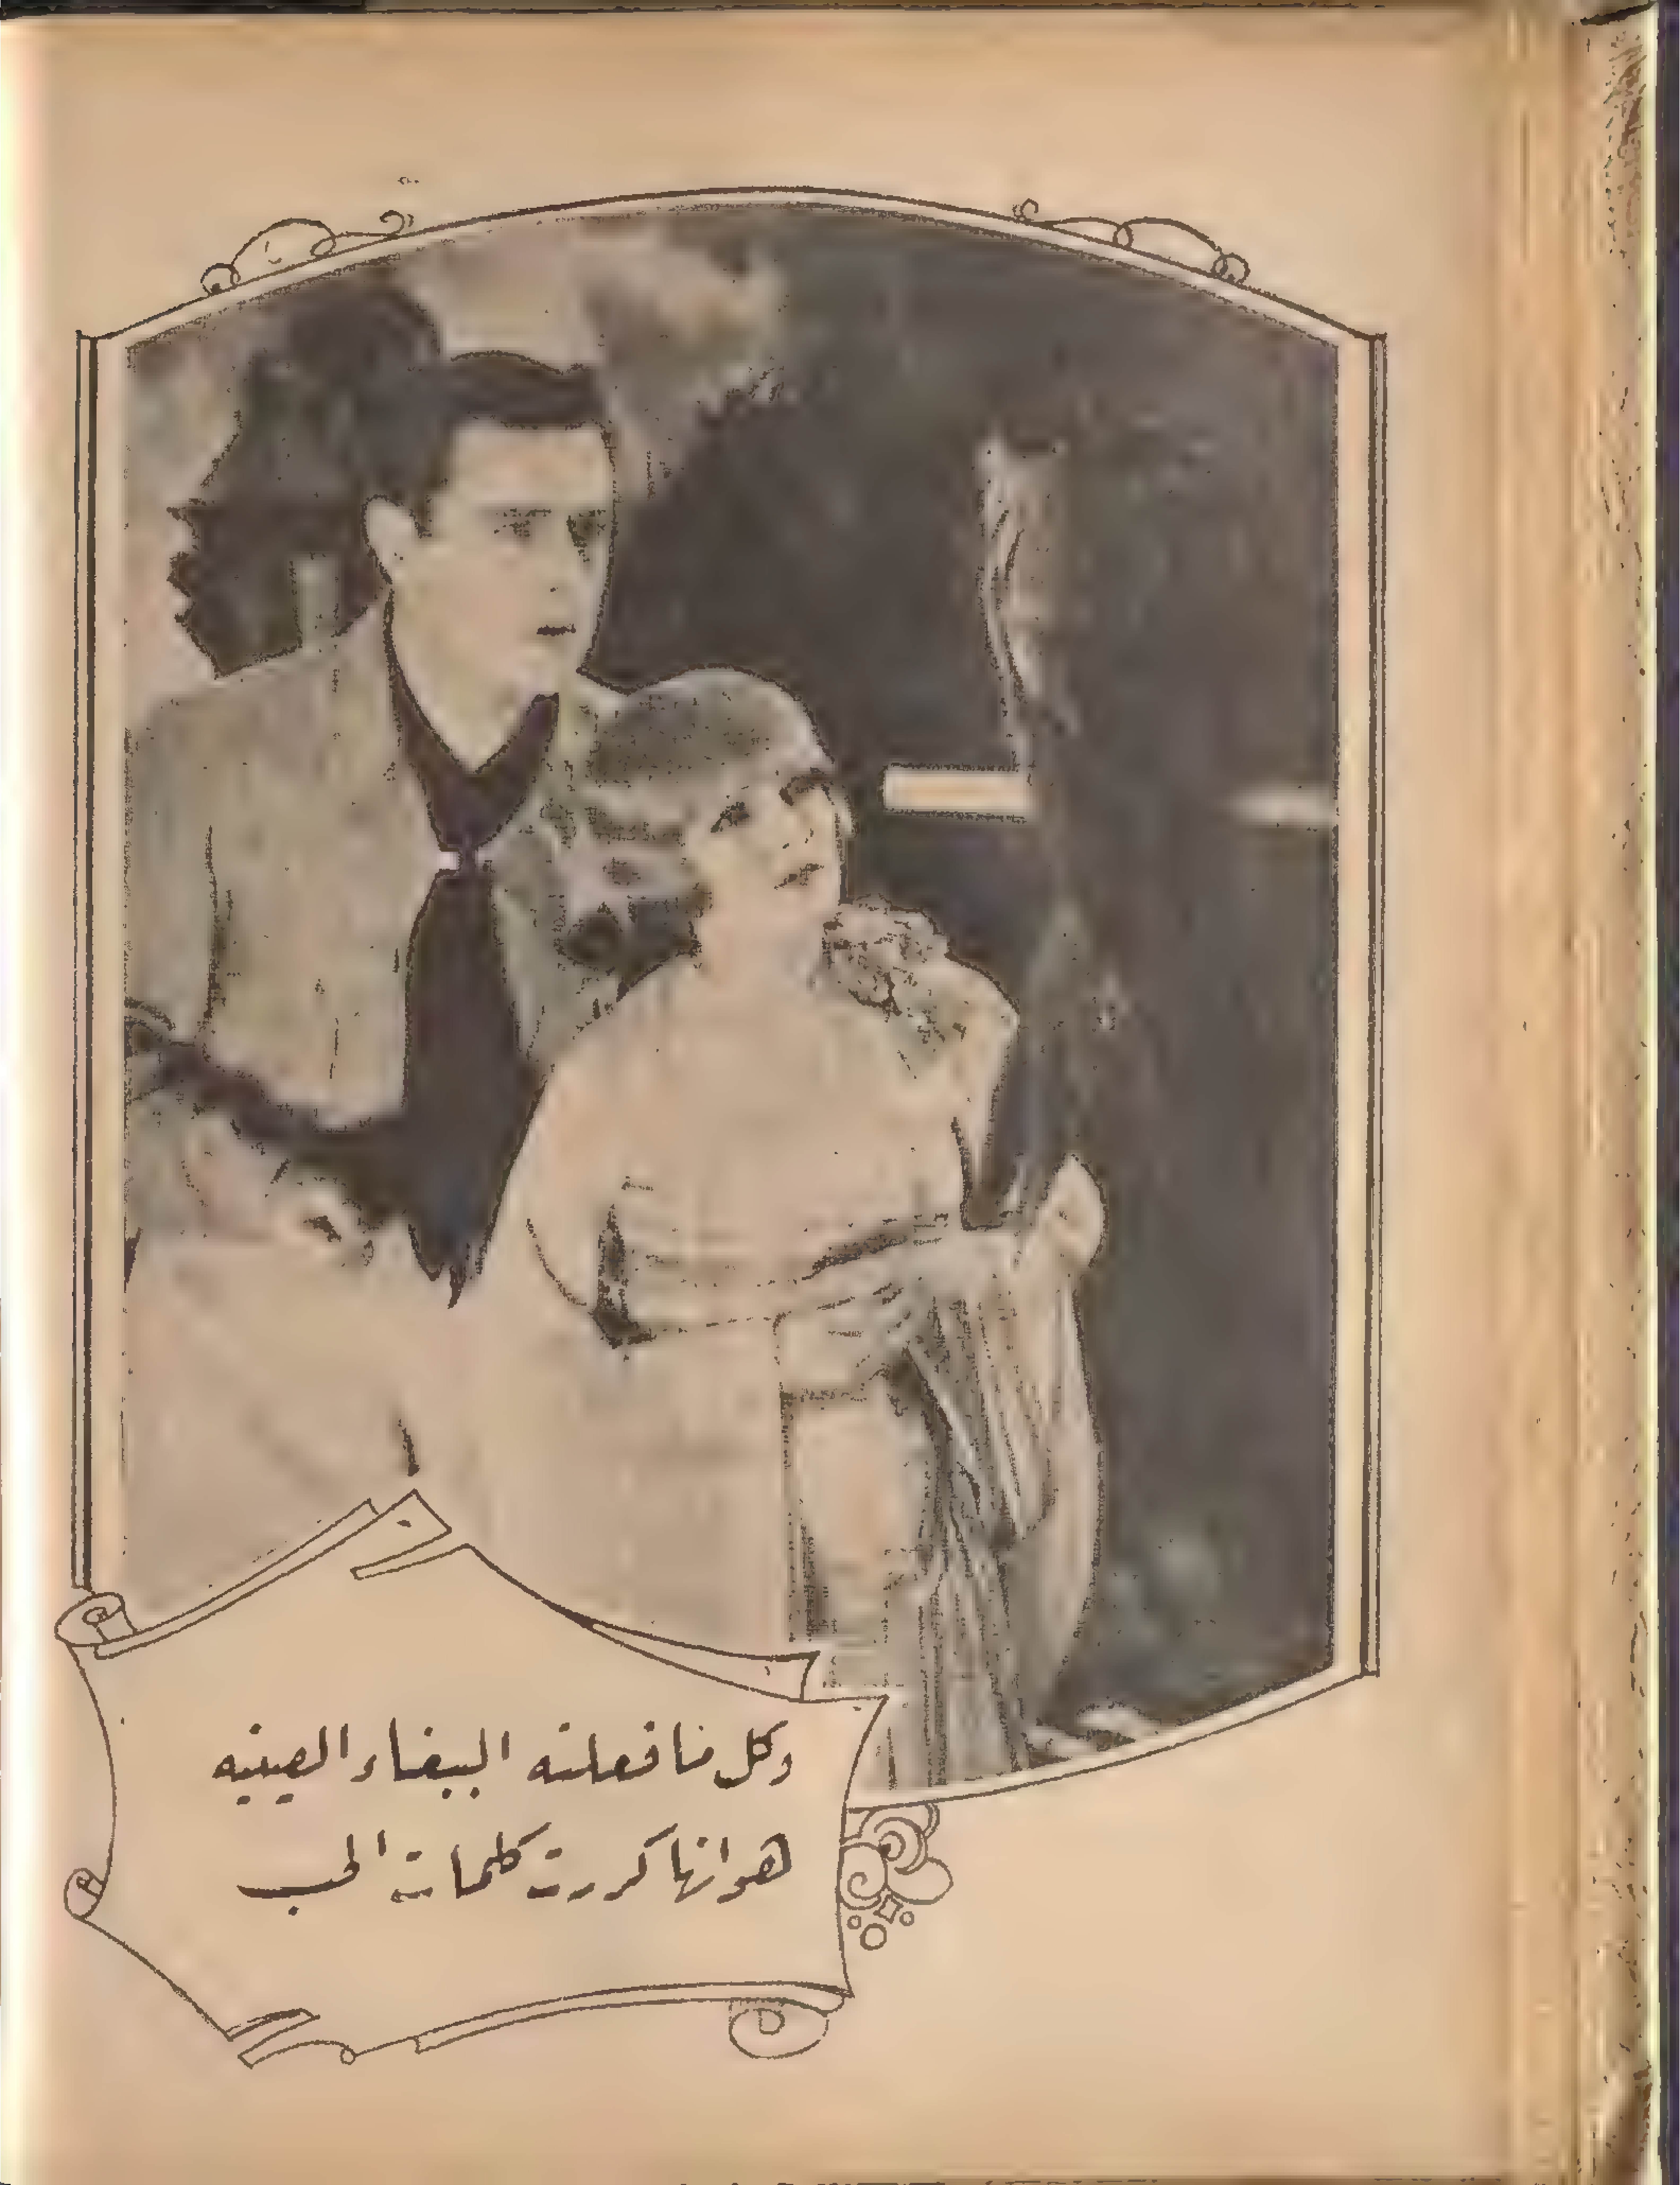 وكل ما فعلته الببغاء الصينيه
هو انها كررت كلمات الحب